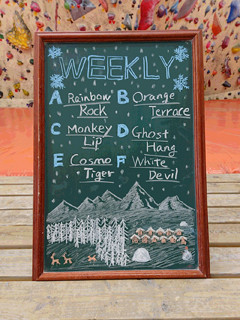 WEEKLY
A Rainbow Rock
B Orange Terrace
C Monkey Lip
D Ghost Hang
E Cosmo Tiger
F White Devil